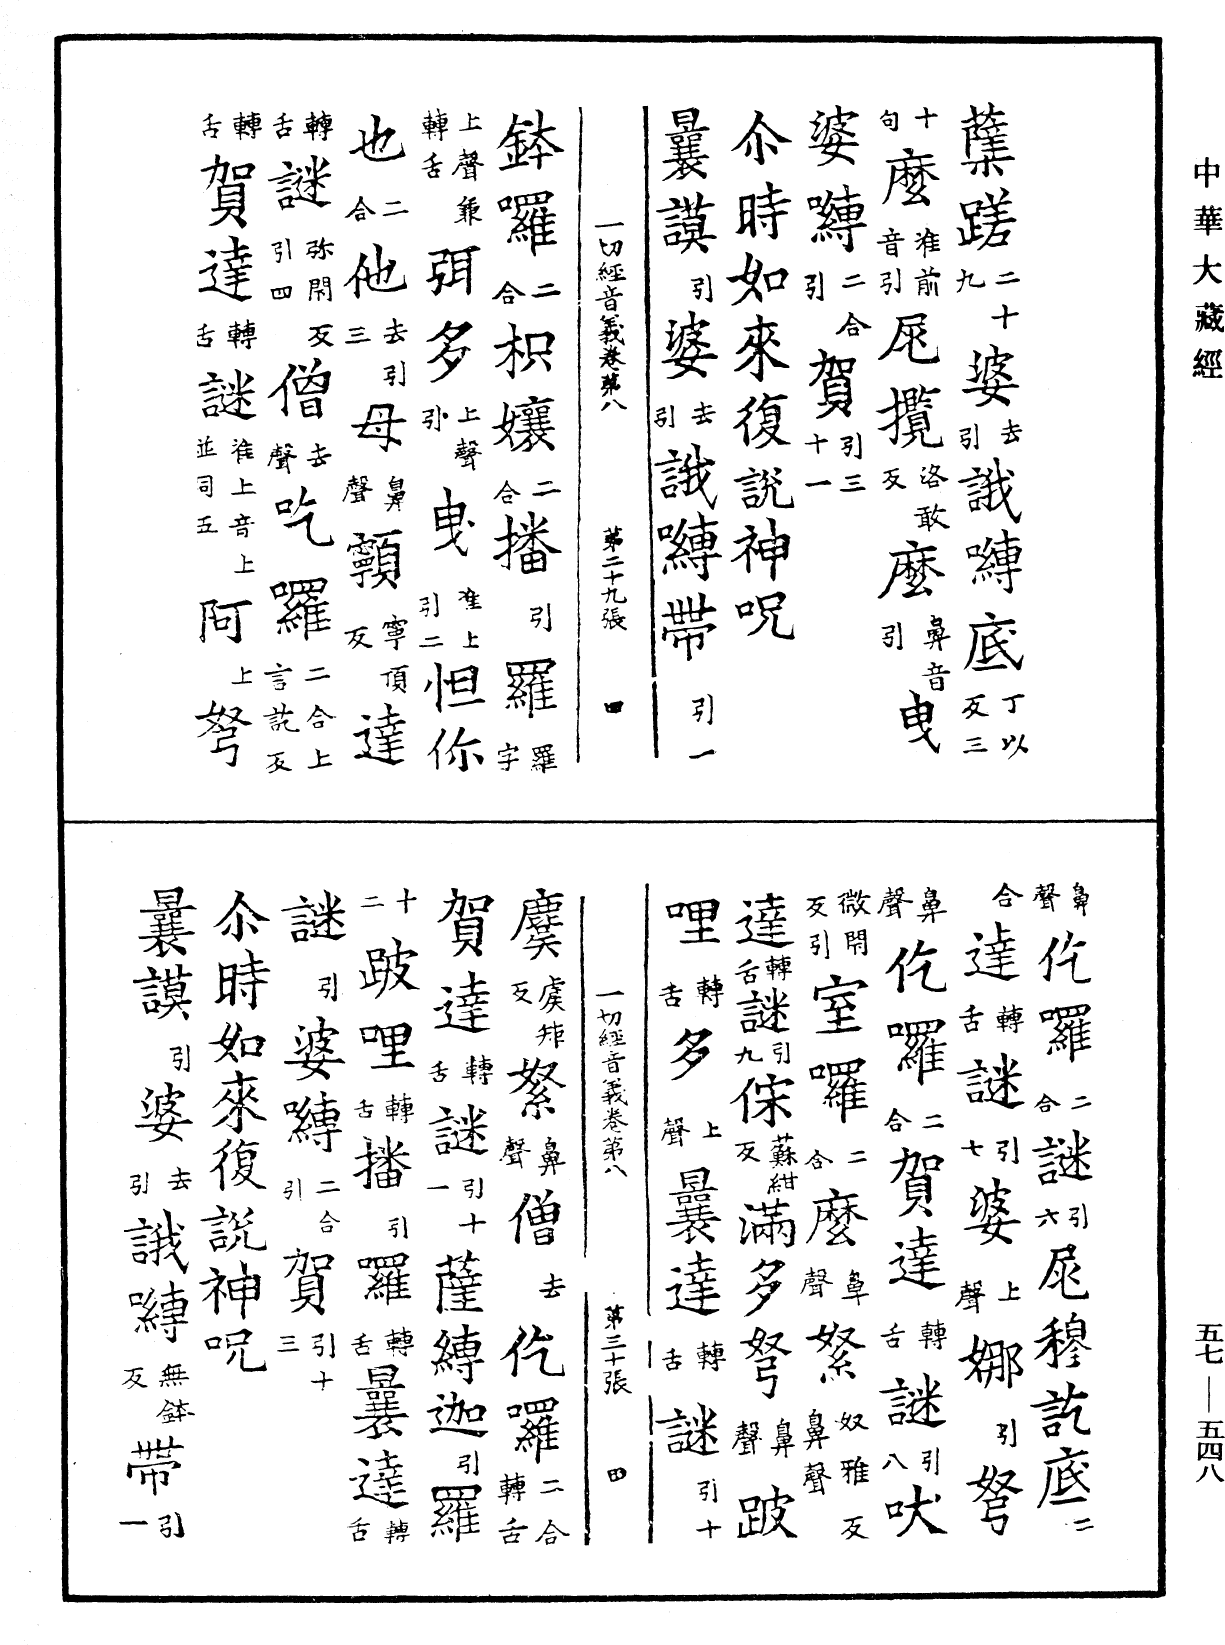 中華大藏經
蕯蹉二十九婆去引誐嚩底丁以反三
十句麼准前音引尾攬洛敢反麼鼻音引曳
婆嚩二合引賀引三十一
尒時如來復說神呪
曩謨引婆去引誐嚩帶引一
一切經音義卷第八　第二十九張　四
鉢囉二合枳孃二合播引羅羅字
上聲兼轉舌弭多上聲引曳准上引二怛你
也二合他去引三母鼻聲顐寧頂反達
轉舌謎弥閇反引四僧去聲吃囉二合上言訖反
轉舌賀達轉舌謎准上音上並同五阿上弩
鼻聲仡囉二合謎引六尾穆訖底二
合達轉舌謎引七婆上聲娜引弩
鼻聲仡囉二合賀達轉舌謎引八吠
微閇反引室囉二合麼鼻聲縏奴雅反鼻聲
達轉舌謎引九倸蘇紺反滿多弩鼻聲跛
哩轉舌多上聲曩達轉舌謎引十
一切經音義卷第八　第三十張　四
麌虞矩反縏鼻聲僧去仡囉二合轉舌
賀達轉舌謎引十一薩縛迦引羅
十二跛哩轉舌播引囉轉舌曩達轉舌
謎引婆嚩二合引賀引十三
尒時如來復說神呪
曩謨引婆去引誐嚩無鉢反帶引一
五七—五四八